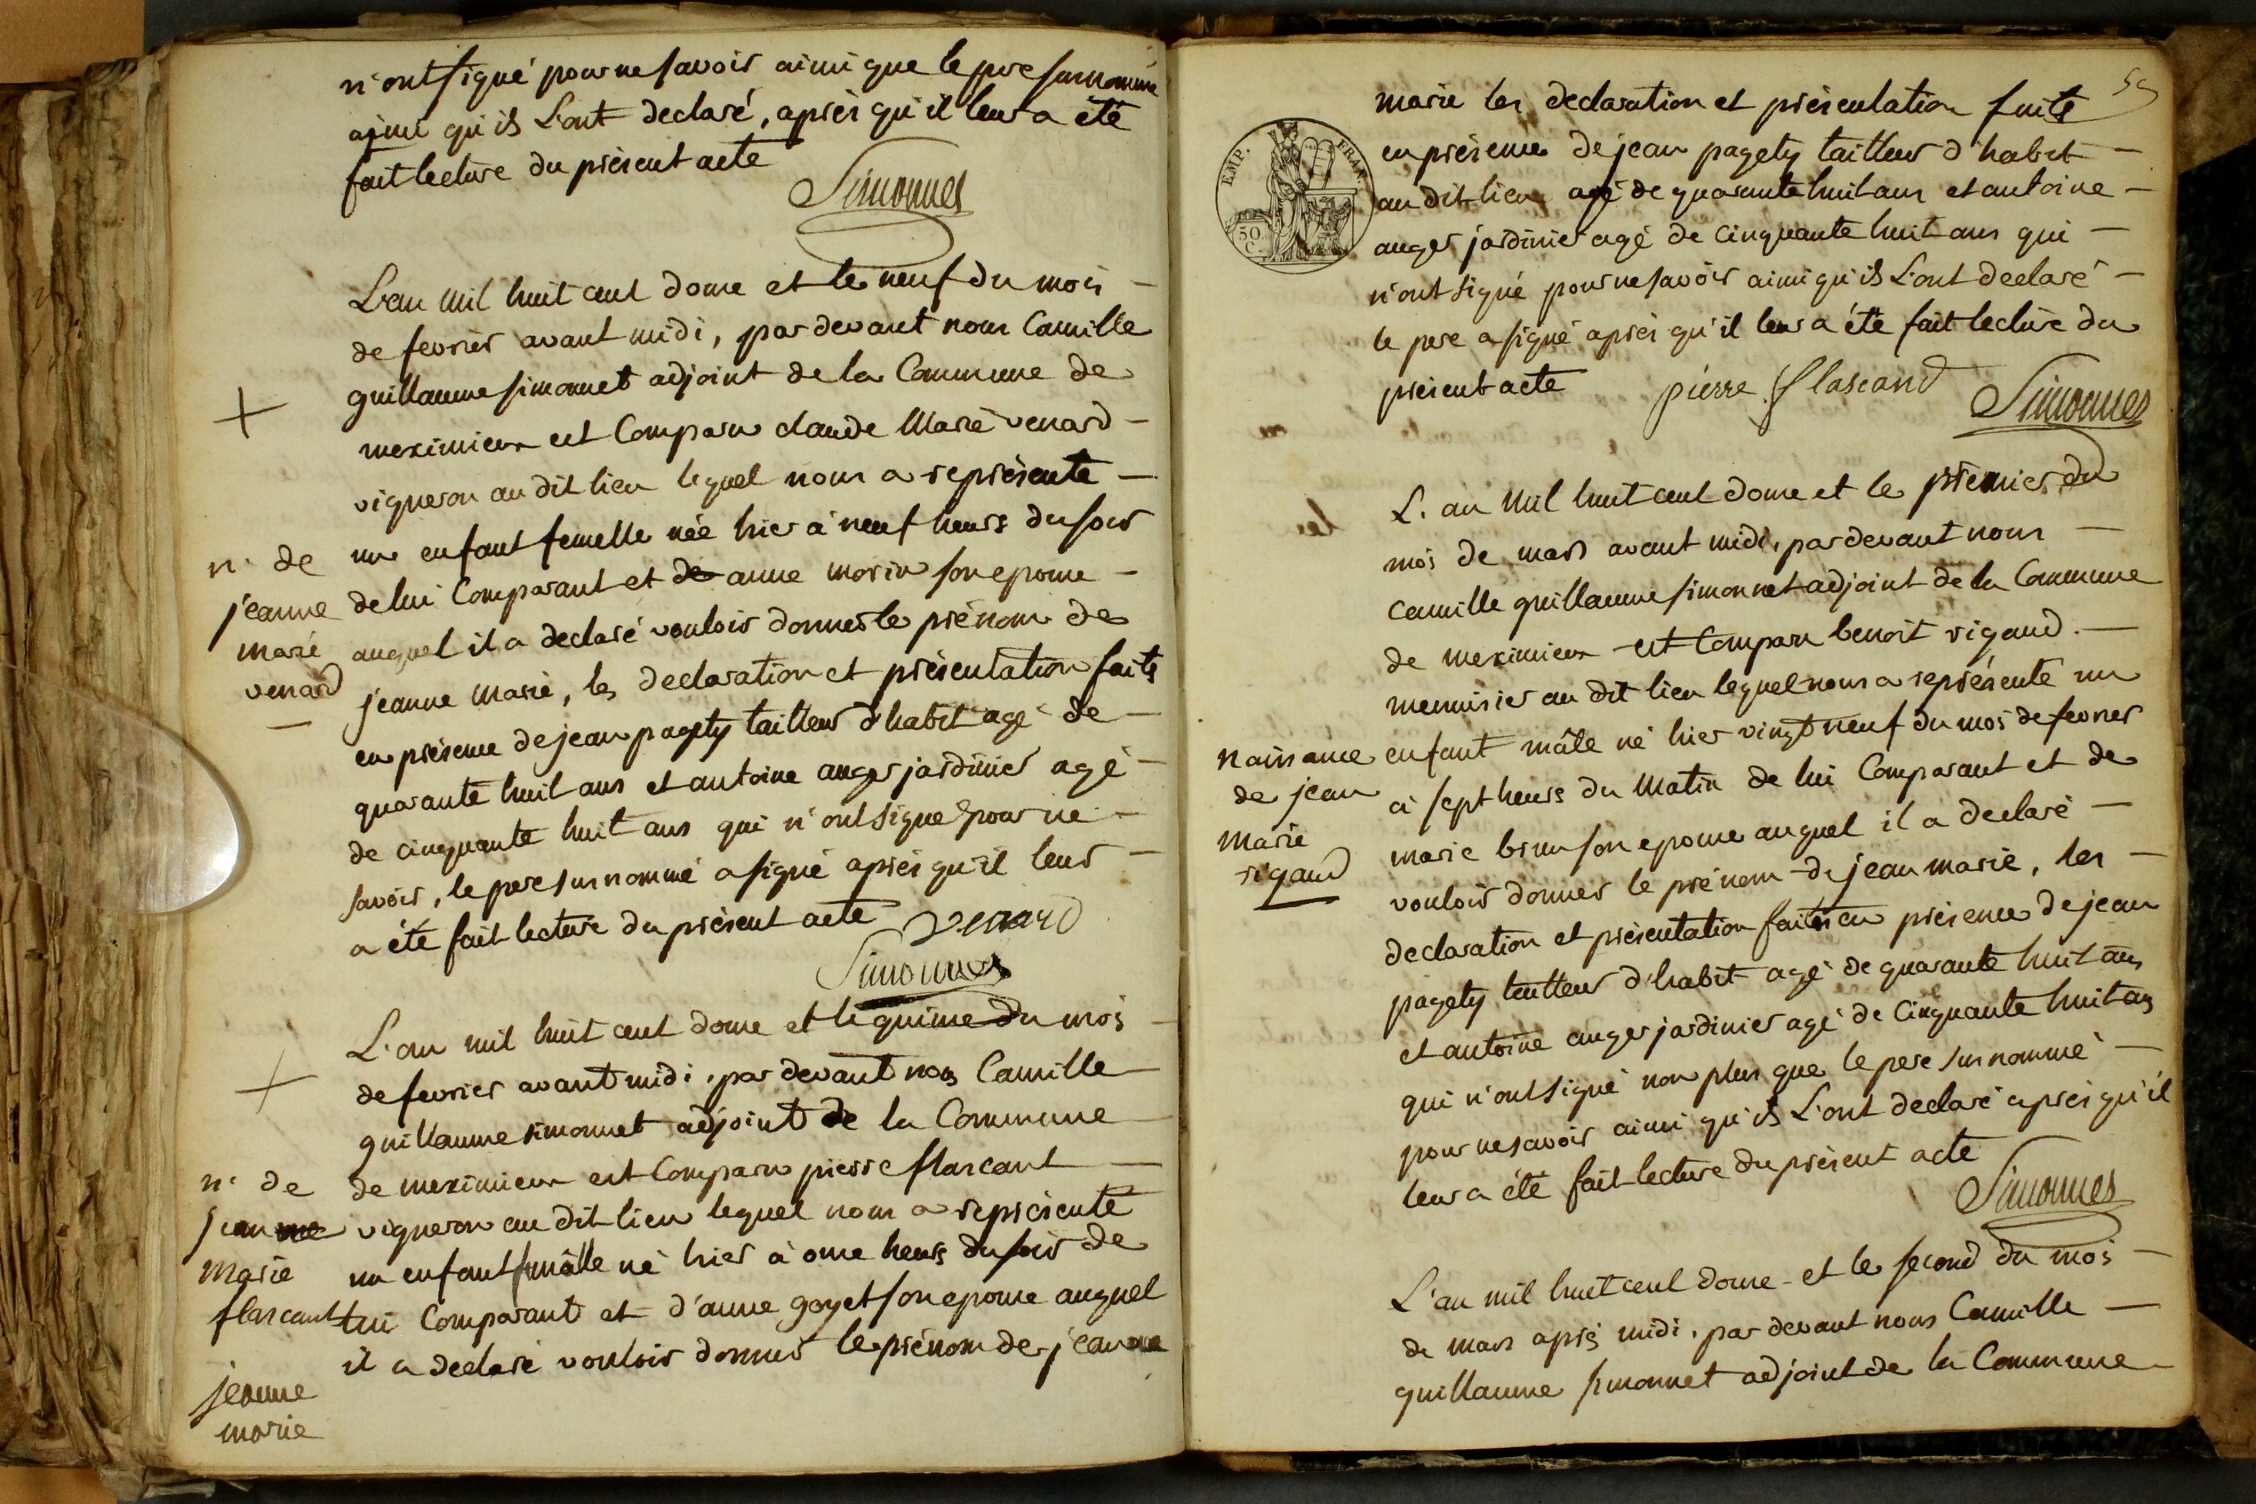 n'ont signé pour ne savoir ainsi que le pere surnommé
ainsi qu'ils L'ont declaré, après qu'il leur a été
fait lecture du présent acte
Simonnet
L'an mil huit cent douze et le neuf du mois
de fevrier avant midi, par devant nous Camille
guillaume simonnet adjoint de la Commune de
meximieux est Comparu claude Marie venard
vigneron au dit lieu lequel nous a représenté
un enfant femelle née hier à neuf heurs du soir
de lui Comparant et de anne morin son epouse
auquel il a declaré vouloir donner le prénom de
jeanne Marie, les declaration et présentation faite
en présence de jean pagety tailleur d'habit agé de
quarante huit ans et antoine auger jardinier agé
de cinquante huit ans qui n'ont signé pour ne
savoir, le pere surnommé a signé après qu'il leur
a été fait lecture du présent acte venard
Simonnet
n. de
jeanne
marie
venard
L'an mil huit cent douze et le quinze du mois
de fevrier avant midi, par devant nous Camille
guillaume simonnet adjoint de la Commune
de meximieux est Comparu pierre flascant
vigneron au dit lieu lequel nous a représenté
un enfant mâlle né hier à onze heurs du soir de
lui Comparant et d'anne goyet son epouse auquel
il a declaré vouloir donner le prénom de jeanne
n. de
jeanne
Marie
flascant
jeanne
marie
59
EMP. FRAN.
50 C.
marie les declaration et présentation faite
en présence de jean pagety tailleur d'habit
au dit lieu agé de quarante huit ans et antoine
auger jardinier agé de cinquante huit ans qui
n'ont signé pour ne savoir ainsi qu'ils L'ont declaré
le pere a signé après qu'il leur a été fait lecture du
présent acte pierre flascand Simonnet
L'an Mil huit cent douze et le premier du
mois de mars avant midi, par devant nous
camille guillaume simonnet adjoint de la Commune
de meximieux est Comparu benoit rigaud
menuisier au dit lieu lequel nous a représenté un
enfant mâle né hier vingt neuf du mois de fevrier
à sept heurs du Matin de lui Comparant et de
marie brun son epouse auquel il a declaré
vouloir donner le prénom de jean marie, les
declaration et présentation faites en présence de jean
pagety tailleur d'habit agé de quarante huit ans
et antoine auger jardinier agé de Cinquante huit ans
qui n'ont signé non plus que le pere surnommé
pour ne savoir ainsi qu'ils L'ont declaré après qu'il
leur a été fait lecture du présent acte
Simonnet
naissance
de jean
Marie
rigaud
L'an mil huit cent douze et le second du mois
de mars après midi, par devant nous Camille
guillaume simonnet adjoint de la Commune